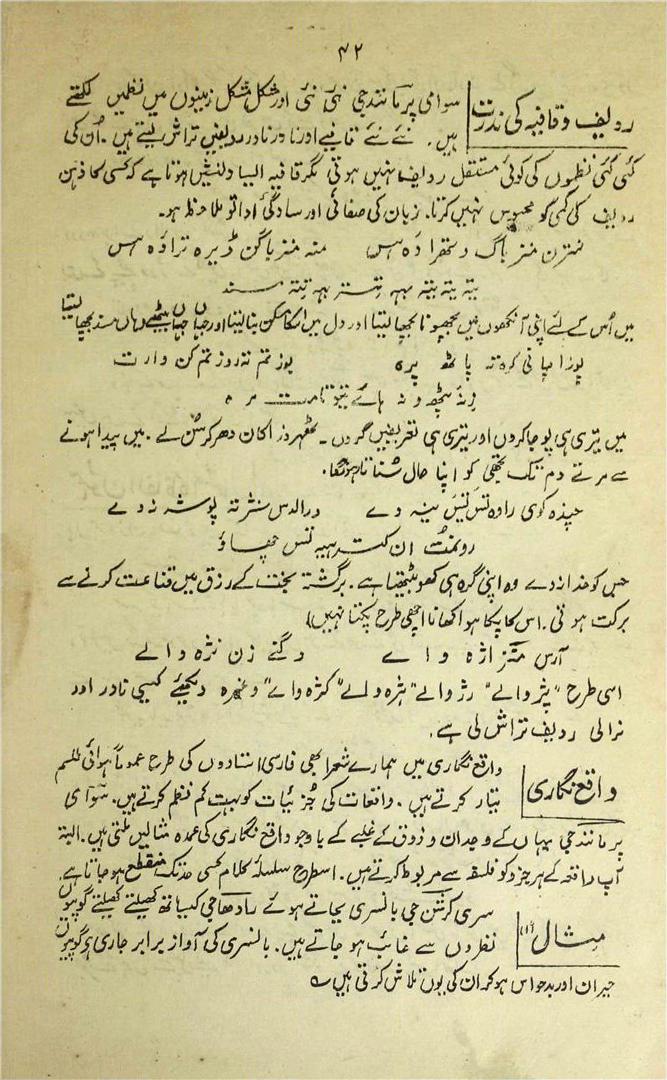 ۴۲
ردیف و قافیہ کی ندرت
سوامی پرمانند جی نئی نئی اور مشکل مشکل زمینوں میں نظمیں لکھتے
ہیں۔ نئے نئے قافیے اور نادر نادر ردیفیں تراش لیتے ہیں۔ اُن کی
کئی کئی نظموں کی کوئی مستقل ردیف نہیں ہوتی مگر قافیہ ایسا دلنشیں ہوتا ہے کہ کسی کا ذہن
ردیف کی کمی کو محسوس نہیں کرتا۔ زبان کی صفائی اور سادگیٔ ادا تو ملاحظہ ہو۔
منز باگ وتھراوہس منہ منز باگن ڈیرہ تراوہس
یتہ یتہ بیتہ بہہ تتہ بہہ تتہ مسند
میں اُس کے لئے اپنی آنکھوں میں بچھونا بچھا لیتا اور دل میں اسکا مسکن بنا لیتا اور جہاں جہاں بیٹھے وہاں مسند بچھا لیتا
پوزا چانی کرہ تہ پاٹھ پرہ بوز تم تہ روز تم کن دارت
زیٹھ و نہ ہائے مرہ
میں تیری ہی پوجا کروں اور تیری ہی تعریفیں کروں۔ ٹھہر ذرا کان دھر کر سُن لے۔ میں پیدا ہونے
سے مرتے دم تک تجھی کو اپنا حال سُناتا رہونگا۔
راوہ تس تس ینہ دے در الدس نشر تہ پوشہ نہ دے
رو منت ان کتہ
جس کو خدا نہ دے وہ اپنی گرہ ہی کھو بیٹھتا ہے۔ برگشتہ بخت کے رزق میں قناعت کرنے سے
برکت ہوتی۔ اس کا پکا ہوا کھانا اچھی طرح پکتا نہیں)
آرس منز اژہ واے دگنے زن نژہ والے
اسی طرح "پژوالے" رژوالے" ہژہ ولے" کژہ واے" وغیرہ دیکھئے کیسی نادر اور
نرالی ردیف تراش لی ہے۔
واقع نگاری
واقع نگاری میں ہمارے شعرا بھی فارسی استادوں کی طرح عموماً ہوائی طلسم
تیار کرتے ہیں۔ واقعات کی جُزئیات کو بہت کم نظم کرتے ہیں۔ سوامی
پرمانند جی یہاں کے وجدان و ذوق کے غلبے کے باوجود واقع نگاری کی عمدہ مثالیں ملتی ہیں۔ البتہ
آپ واقعہ کے ہر جزو کو فلسفہ سے مربوط کرتے ہیں۔ اسطرح سلسلۂ کلام کسی حد تک منقطع ہو جاتا ہے۔
مثال (۱)
سری کرشن جی بانسری بجاتے ہوئے رادھا جی کیساتھ کھیلتے کھیلتے گوپیوں
نظروں سے غائب ہو جاتے ہیں۔ بانسری کی آواز برابر جاری ہو گوپیوں
حیران اور بدحواس ہو کر ان کی یوں تلاش کرتی ہیں ؎